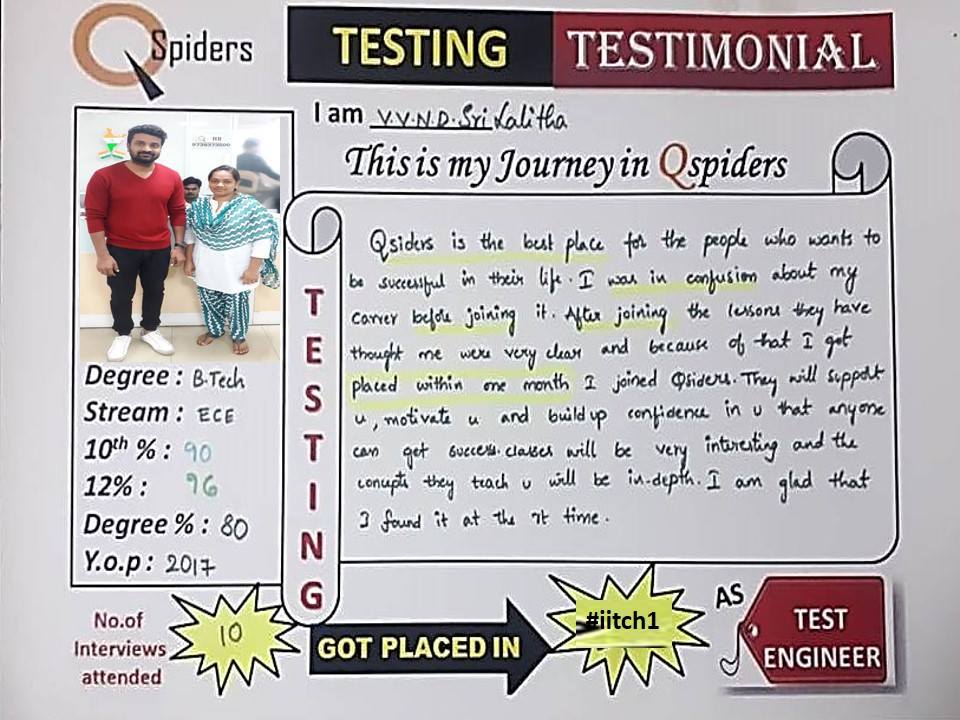 QSpiders
TESTING TESTIMONIAL
I am V.V.N.D.Sri Lalitha
This is my Journey in Qspiders
HR
Qsiders is the best place for the people who wants to
be successful in their life. I was in confusion about my
carrer before joining it. After joining the lessons they have
thought me were very clear and because of that I got
placed within one month I joined Qsiders. They will support
u, motivate u and build up confidence in u that anyone
can get success. classes will be very interesting and the
concepts they teach u will be in-depth. I am glad that
I found it at the rt time.
TESTING
Degree : B.Tech
Stream : ECE
10th % : 90
12% : 96
Degree % : 80
Y.o.p : 2017
No.of
Interviews
attended
10
GOT PLACED IN
#iitch1
AS
TEST
ENGINEER